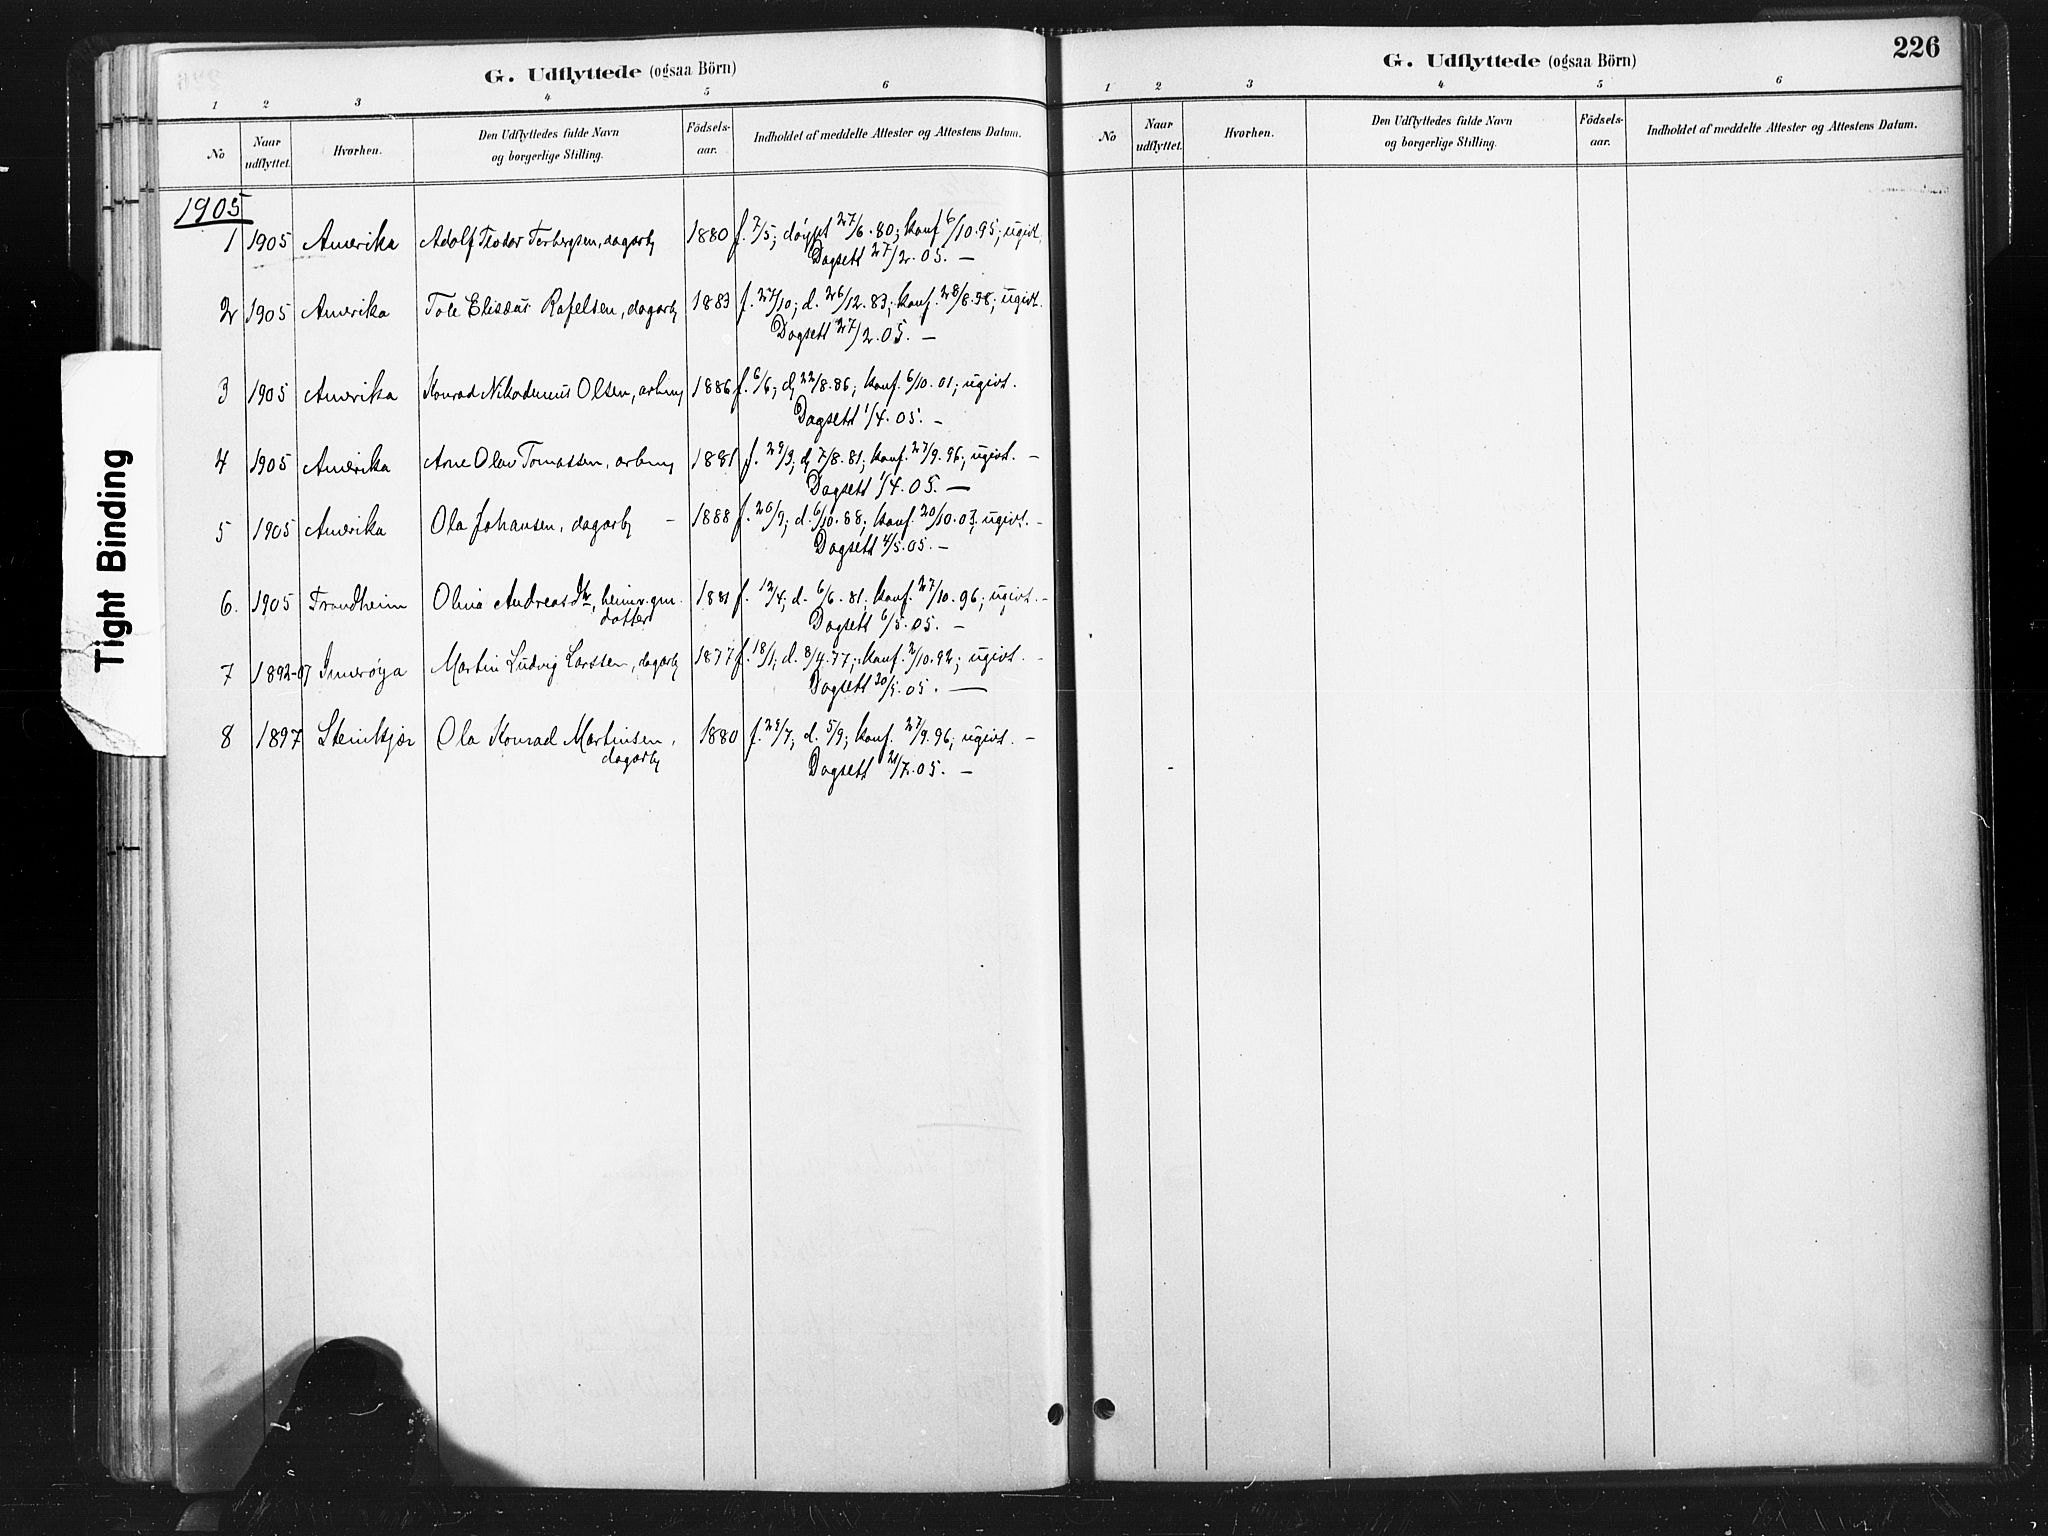 G. Udflyttede (ogsaa Börn)
1 2 3 4 5 6
No Naar udflyttet. Hvorhen. Den Udflyttedes fulde Navn og borgerlige Stilling. Födsels-aar. Indholdet af meddelte Attester og Attestens Datum.
1905
1 1905 Amerika Adolf Teodor Torbergsen, dagarb 1880 f. 7/5; döypt 27/6.80; konf 6/10.95; ugivt.
Dagsett 27/2.05. —
2 1905 Amerika Tole Elisæus Rafelsen, dagarb 1883 f. 27/10; d. 26/12.83; konf. 28/8.98; ugivt.
Dagsett 27/2.05. —
3 1905 Amerika Konrad Nikodemus Olsen, arbmg 1886 f. 6/6; d. 22/8.86; konf. 6/10.01; ugivt.
Dagsett 1/4.05. —
4 1905 Amerika Arne Olav Tomassen, arbmg 1881 f. 29/3; d. 7/8.81; konf. 27/9.96; ugivt. —
Dagsett 1/4.05. —
5 1905 Amerika Ola Johansen, dagarb — 1888 f. 26/9; d. 6/10.88; konf. 20/10.03; ugivt. —
Dagsett 4/5.05. —
6. 1905 Trondheim Olina Andreasdtr, heimv. gm. 1881 f. 12/4; d. 6/6.81; konf. 27/10.96; ugivt. —
dotter Dagsett 6/5.05. —
7 1892-97 Inderöya Martin Ludvig Larssen, dagarb 1877 f. 18/1; d. 8/4.77; konf. 2/10.92; ugivt. —
Dagsett 20/5.05. —
8 1897 Steinkjær Ola Konrad Martinsen, 1880 f. 29/7; d. 5/9; konf. 27/9.96; ugivt. —
dagarb Dagsett 21/7.05. —
Tight Binding
226
G. Udflyttede (ogsaa Börn)
1 2 3 4 5 6
No Naar udflyttet. Hvorhen. Den Udflyttedes fulde Navn og borgerlige Stilling. Födsels-aar. Indholdet af meddelte Attester og Attestens Datum.